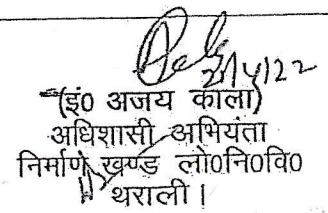 21/4/22
(इं0 अजय काला)
अधिशासी अभियंता
निर्माण खण्ड लो0नि0वि0
थराली।